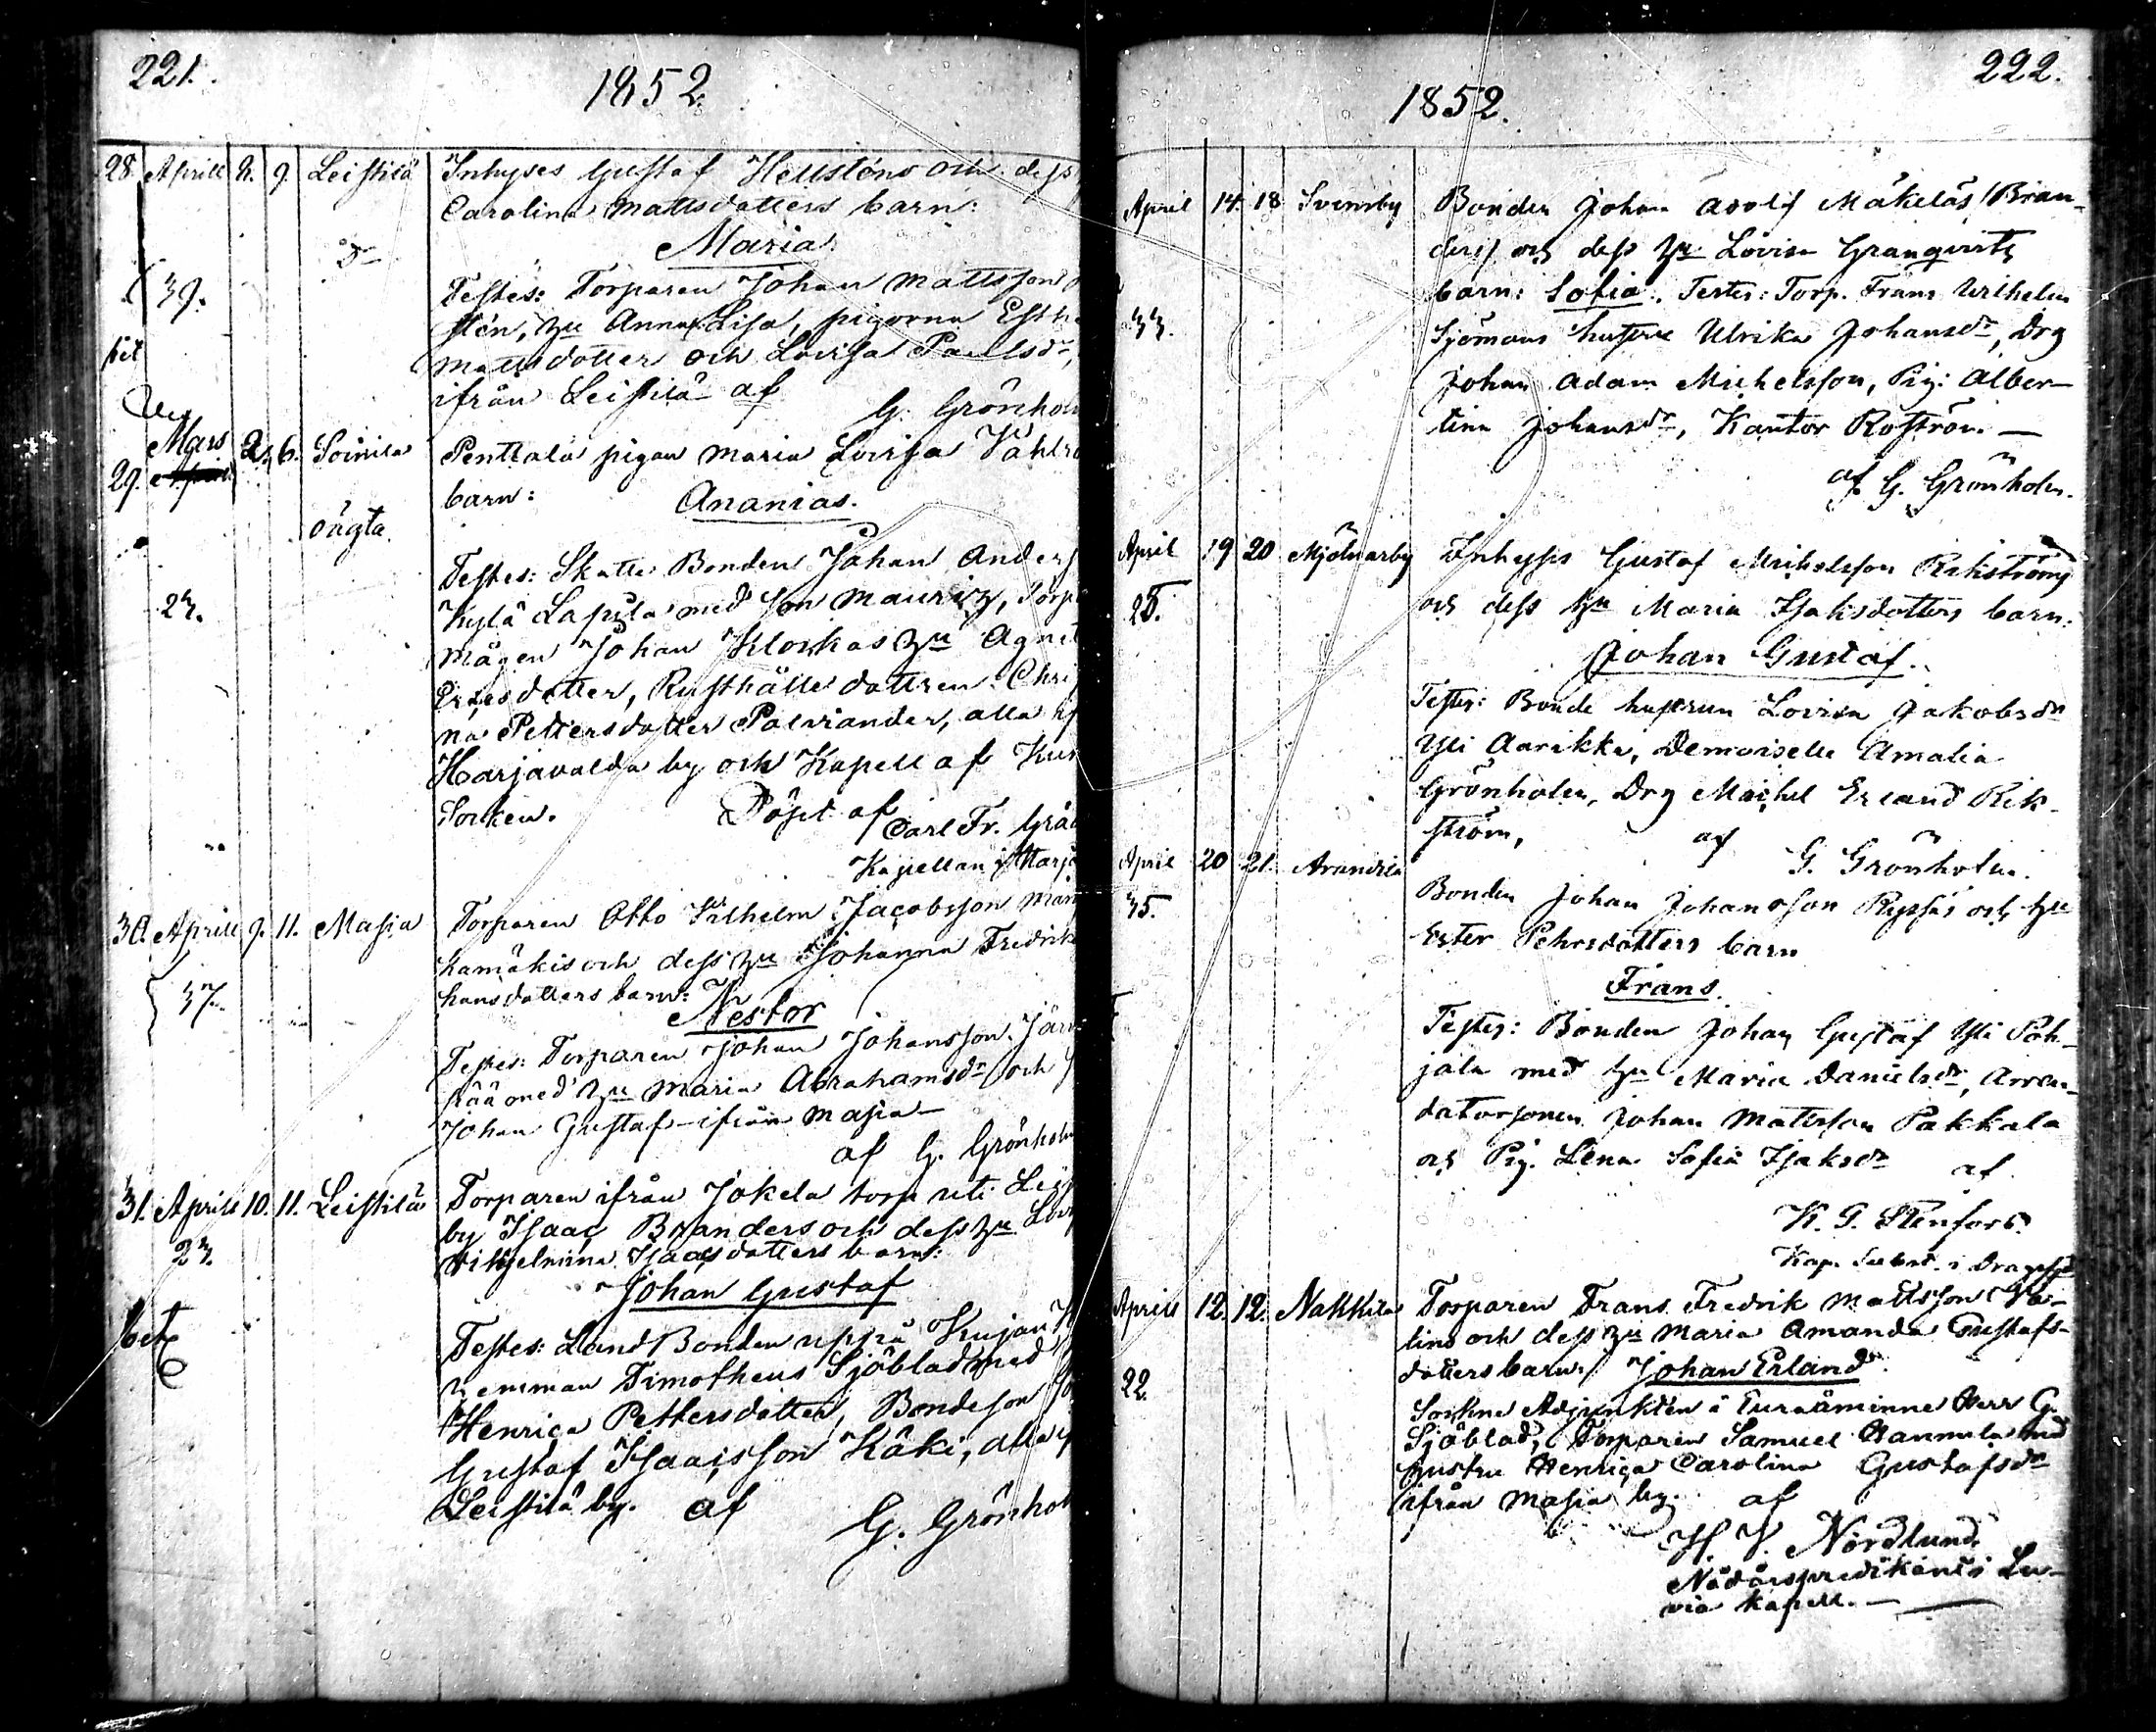 221.
1852.
28. Aprill 8. 9. Leistilä Inhyses Gustaf Hellsténs och dess
Carolina Mattsdotters barn:
Dr
Maria
39. Testes: Torparen Johan Mattsson
stén, hu Anna Lisa, pigorna Esthe
Mattsdotter och Lovisa Paulsdr,
ifrån Leistilä af
G. Grönholm
29. Mars 2. 6. Soinila Penttala pigan Maria Lovisa Vahlro
barn: Ananias.
oägta.
Testes: Skatte Bonden Johan Anders
27. Kylä Lapila med son Mauritz, Torp
mågen Johan Kloskas hu Agnet
dotter, Rusthålle dottren Chri
na Pettersdotter Palviander, alla if
Harjavalda by och Kapell af Kum
Socken. Döpt af
Carl Fr. Grå
Kapellan i Harja
30. Aprill 9. 11. Masia Torparen Otto Vilhelm Jacobsson Män
37. kamäkis och dess hu Johanna Fredrik
hansdotters barn: Nestor
Testes: Torparen Johan Johansson Järv
pää med hu Maria Abrahamsdr och
Johan Gustaf ifrån Masia
af G. Grönholm
31. Aprill 10. 11. Leistilä Torparen ifrån Jokela torp uti Leis
by Isaac Branders och dess hu Lov
27. Vilhelmina Isaacsdotters barn:
Johan Gustaf
Testes: Land Bonden uppå Kujan
hemman Timotheus Sjöblad med
Henrica Pettersdotter, Bondeson
Gustaf Isaacsson Käki, alla
Leistilä by. af G. Grönhol
222.
1852.
April 14. 18 Svensby Bonden Johan Adolf Mäkeläs (Bran-
ders) och dess hu Lovisa Granqvists
barn: Sofia. Testes: Torp. Frans Wilhelm
33. Sjömans hustru Ulrika Johansdr, Drg
Johan Adam Michelsson, Pig: Alber-
tina Johansdr, Kantor Roström. —
af G. Grönholm.
April 19 20 Mjölnarby Inhyses Gustaf Michelsson Rikströms
25. och dess hu Maria Isaksdotters barn:
Johan Gustaf.
Testes: Bonde hustrun Lovisa Jakobsdr
Yli Aarikka, Demoiselle Amalia
Grönholm, Drg Michel Erland Rik-
ström, af
G. Grönholm.
April 20 21. Arandila
35. Bonden Johan Johansson Ryssäs och hu
Ester Pehrsdotters barn
Frans.
Testes: Bonden Johan Gustaf Yli Poh-
jala med hu Maria Danielsdr, Arren-
datorsonen Johan Mattsson Pakkala
och Pig. Lena Sofia Isaksdr af
K. G. Stenfors
Kap. Subst. i Dragsfjd
Aprill 12. 12. Nakkila Torparen Frans Fredrik Mattsson Va-
lins och dess hu Maria Amanda Gustafs-
dotters barn: Johan Erland
22. Sockne Adjunkten i Euraåminne Herr G.
Sjöblad, Torparen Samuel Hannula med
hustru Henrica Carolina Gustafsdr
ifrån Masia by. af
H V. Nordlund
Nådårspredikant i Lu-
via kapell. —